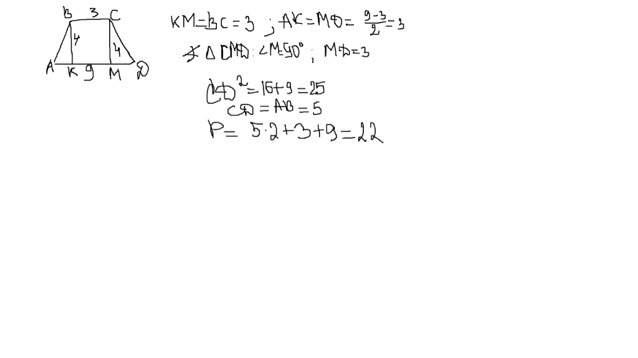 B 3 C
4 4
A K 9 M D
KM=BC=3 ; AK=MD= (9-3)/2 =3
△ CMD: ∠M=90° ; MD=3
CD²=16+9=25
CD=AB=5
P= 5·2+3+9=22